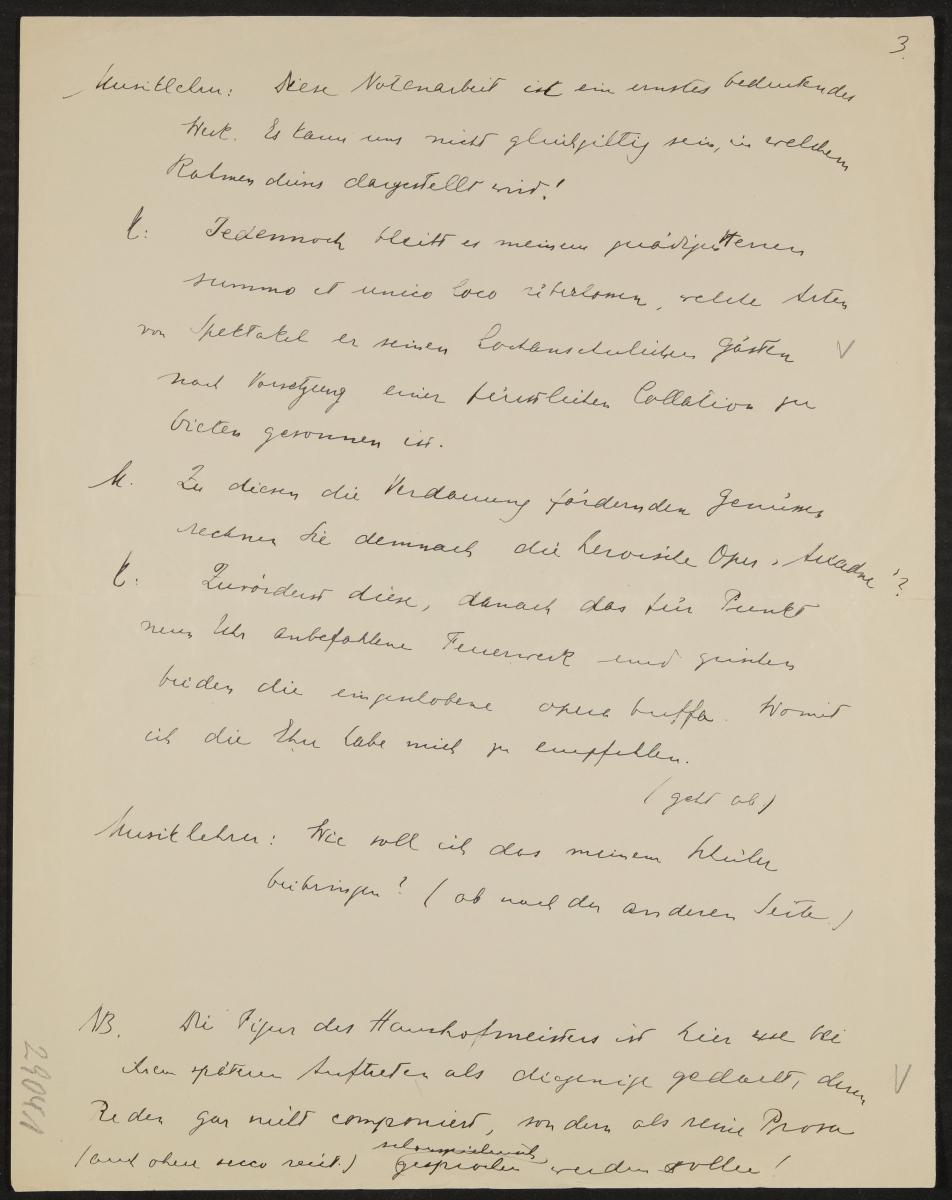 3.
Musiklehrer: Diese Notenarbeit ist ein ernstes bedeutendes
Werk. Es kann uns nicht gleichgiltig sein, in welchem
Rahmen dieses dargestellt wird!
H: Jedennoch bleibt es meinem gnädigen Herren
summo et unico loco überlassen, welche Arten
von Spektakel er seinen hochansehnlichen Gästen
nach Vorsetzung einer fürstlichen Collation zu
bieten gesonnen ist.
M. Zu diesen die Verdauung fördernden Genüssen
rechnen Sie demnach die heroische Oper „Ariadne"?
H: Zuvörderst diese, danach das für Punkt
neun Uhr anbefohlene Feuerwerk und zwischen
beiden die eingeschobene opera buffa. Womit
ich die Ehre habe mich zu empfehlen.
(geht ab.)
Musiklehrer: Wie soll ich das meinem Schüler
beibringen? (ab nach der anderen Seite.)
NB. Die Figur des Haushofmeisters ist hier wie bei
ihrem späteren Auftreten als diejenige gedacht, deren
Reden gar nicht componiert, sondern als reine Prosa
(auch ohne secco recit.)
gesprochen werden sollen!
29041